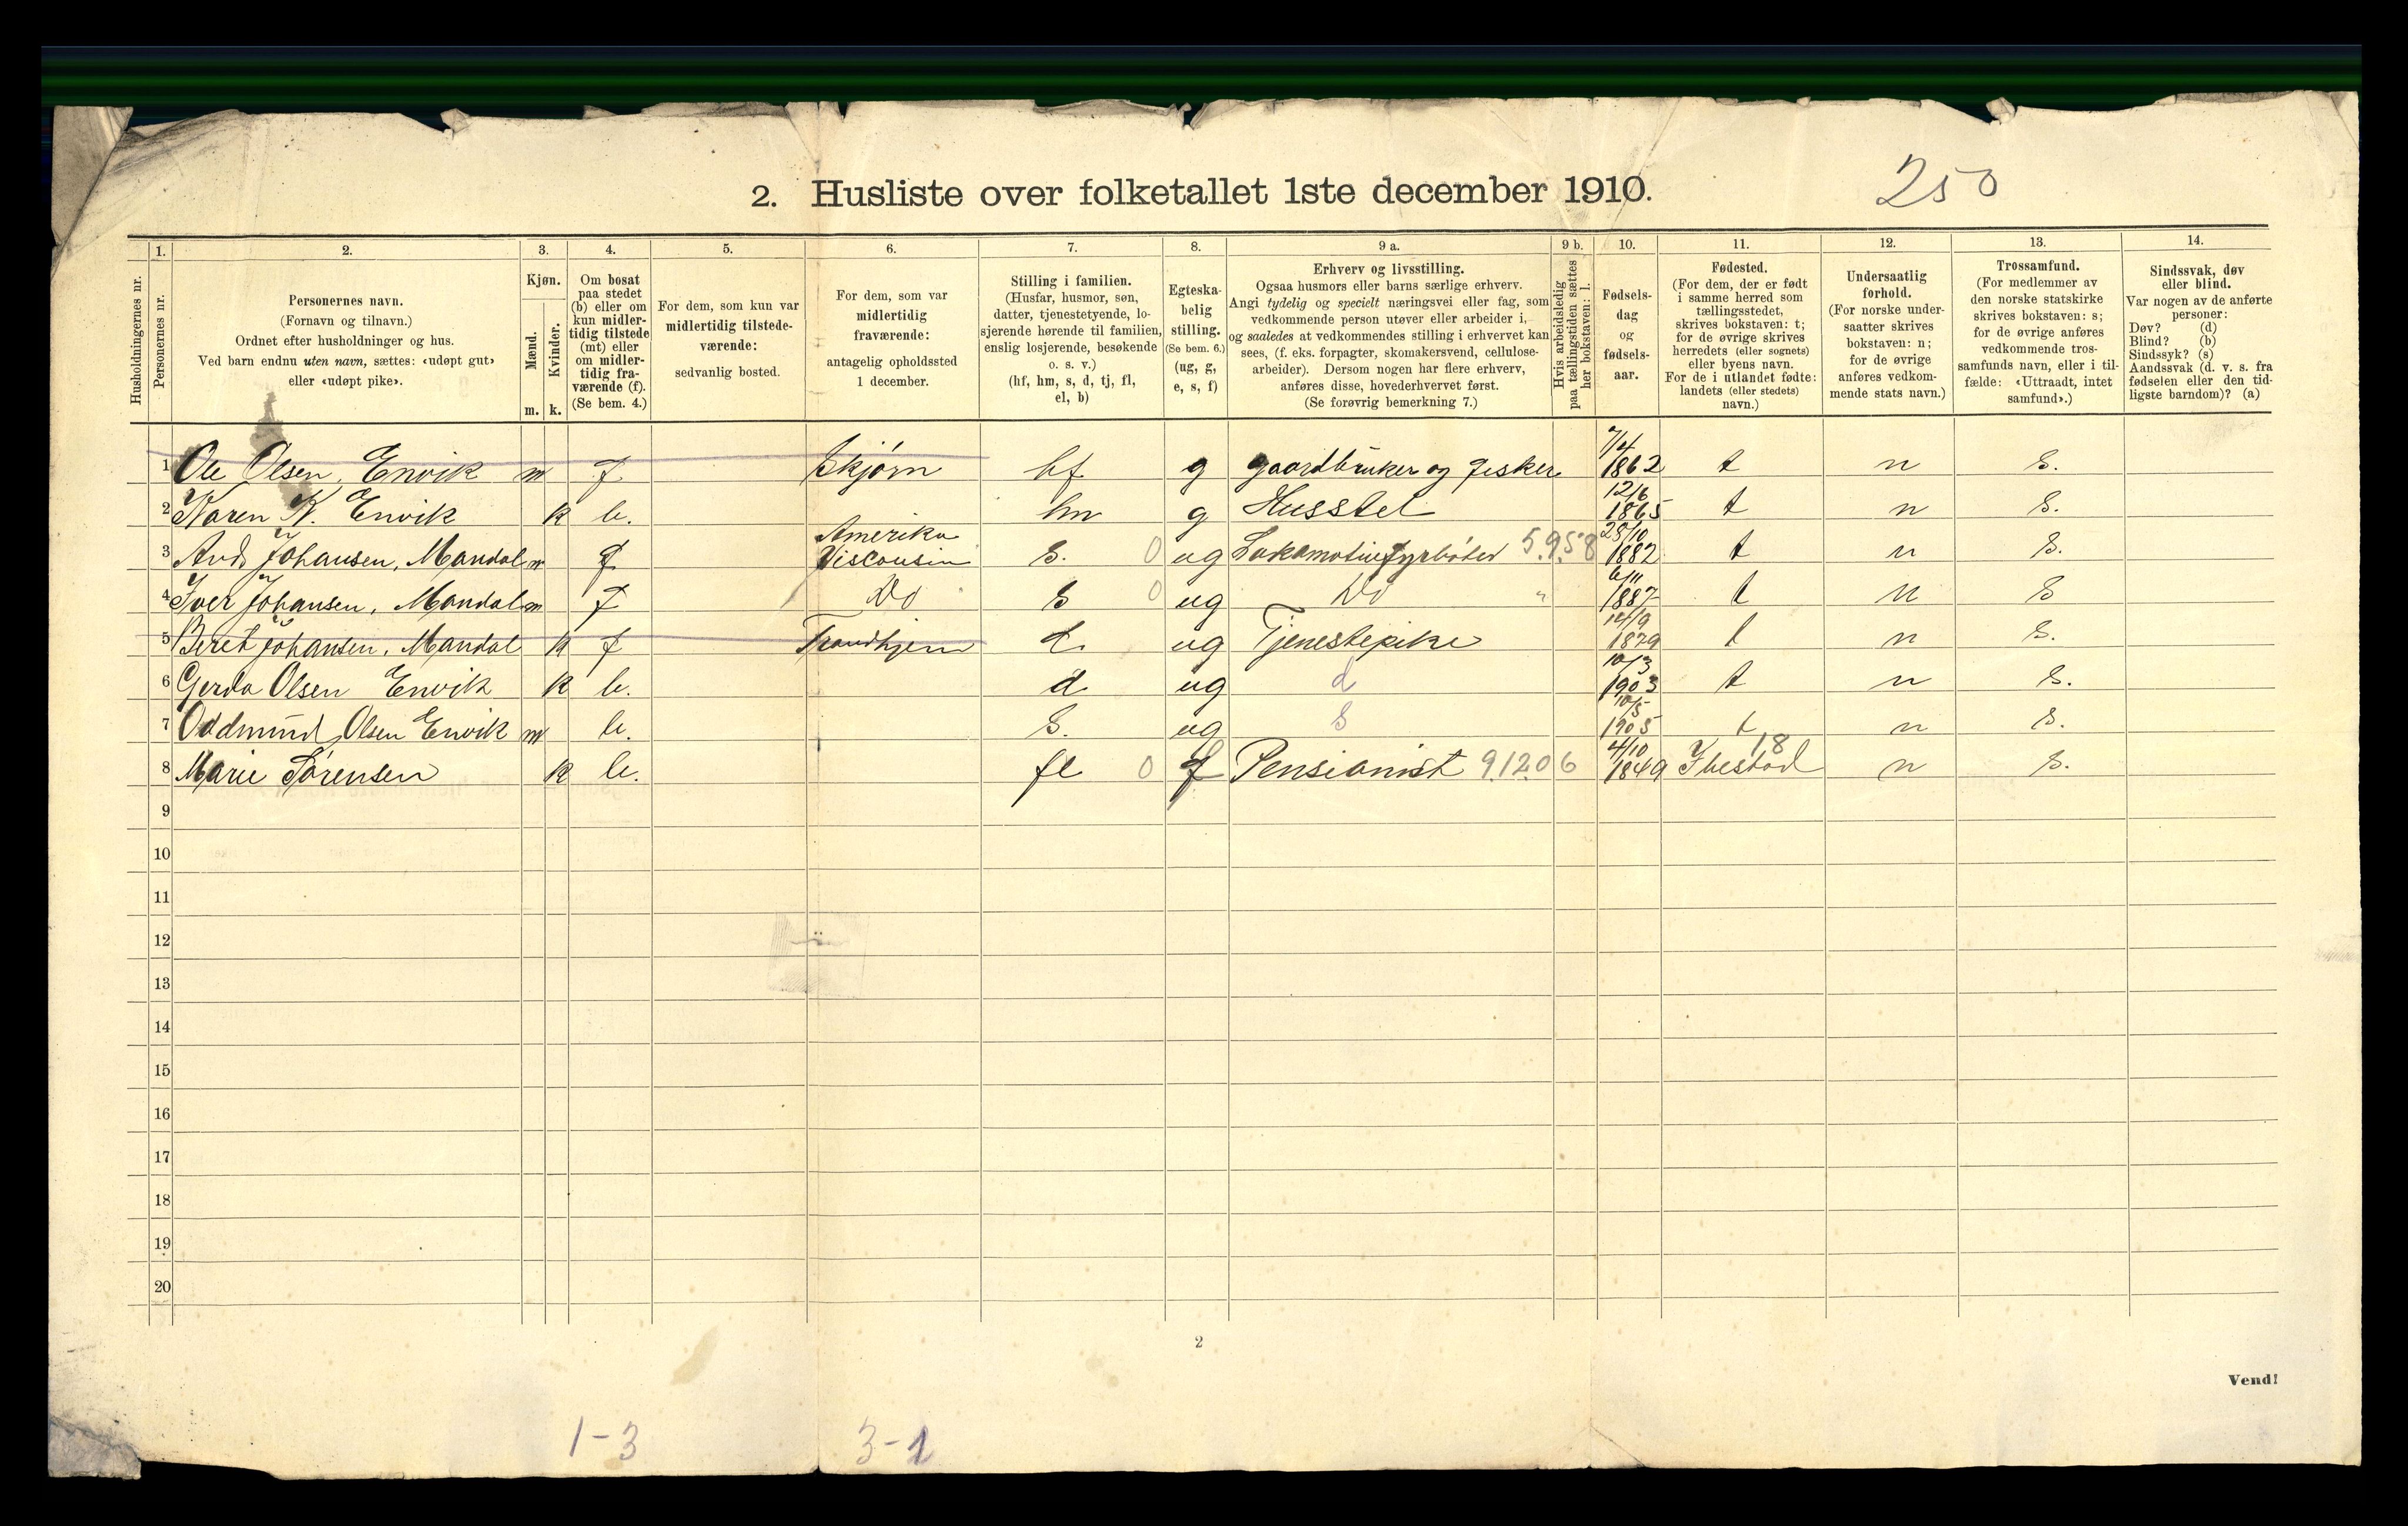 2. Husliste over folketallet 1ste december 1910.
250
1. 2. 3. 4. 5. 6. 7. 8. 9 a. 9 b. 10. 11. 12. 13. 14.
Husholdningernes nr.
Personernes nr.
Personernes navn.
(Fornavn og tilnavn.)
Ordnet efter husholdninger og hus.
Ved barn endnu uten navn, sættes: «udøpt gut»
eller «udøpt pike».
Kjøn.
Mænd.
Kvinder.
m. k.
Om bosat
paa stedet
(b) eller om
kun midler-
tidig tilstede
(mt) eller
om midler-
tidig fra-
værende (f).
(Se bem. 4.)
For dem, som kun var
midlertidig tilstede-
værende:
sedvanlig bosted.
For dem, som var
midlertidig
fraværende:
antagelig opholdssted
1 december.
Stilling i familien.
(Husfar, husmor, søn,
datter, tjenestetyende, lo-
sjerende hørende til familien,
enslig losjerende, besøkende
o. s. v.)
(hf, hm, s, d, tj, fl,
el, b)
Egteska-
belig
stilling.
(Se bem. 6.)
(ug, g,
e, s, f)
Erhverv og livsstilling.
Ogsaa husmors eller barns særlige erhverv.
Angi tydelig og specielt næringsvei eller fag, som
vedkommende person utøver eller arbeider i,
og saaledes at vedkommendes stilling i erhvervet kan
sees, (f. eks. forpagter, skomakersvend, cellulose-
arbeider). Dersom nogen har flere erhverv,
anføres disse, hovederhvervet først.
(Se forøvrig bemerkning 7.)
Hvis arbeidsledig
paa tællingstiden sættes
her bokstaven: l.
Fødsels-
dag
og
fødsels-
aar.
Fødested.
(For dem, der er født
i samme herred som
tællingsstedet,
skrives bokstaven: t;
for de øvrige skrives
herredets (eller sognets)
eller byens navn.
For de i utlandet fødte:
landets (eller stedets)
navn.)
Undersaatlig
forhold.
(For norske under-
saatter skrives
bokstaven: n;
for de øvrige
anføres vedkom-
mende stats navn.)
Trossamfund.
(For medlemmer av
den norske statskirke
skrives bokstaven: s;
for de øvrige anføres
vedkommende tros-
samfunds navn, eller i til-
fælde: «Uttraadt, intet
samfund».)
Sindssvak, døv
eller blind.
Var nogen av de anførte
personer:
Døv? (d)
Blind? (b)
Sindssyk? (s)
Aandssvak (d. v. s. fra
fødselen eller den tid-
ligste barndom)? (a)
1 Ole Olsen, Envik m f Skjørn hf g gaardbruker og fisker 7/4 1862 t n s.
2 Karen K. Envik k b. hm g Husstel 12/6 1865 t n s.
3 Johansen, Mandal m f Amerika Viscousin s. 0 ug Lokamotivfyrbøter 5.9.58 23/10 1882 t n s.
4 Iver Johansen, Mandal m f Do s 0 ug Do " 6/11 1887 t n s
5 Beret Johansen, Mandal k f Trondhjem d. ug Tjenestepike 14/9 1879 t n s.
6 Gerda Olsen Envik k b. d ug d 10/3 1903 t n s.
7 Oddmund Olsen Envik m b. s. ug s 10/5 1905 t n s.
8 Marie Sørensen k b. fl 0 f Pensionist 9.1206 4/10 1849 Ibestad 18 n s.
9
10
11
12
13
14
15
16
17
18
19
20
2
Vend!
1-3
3-1